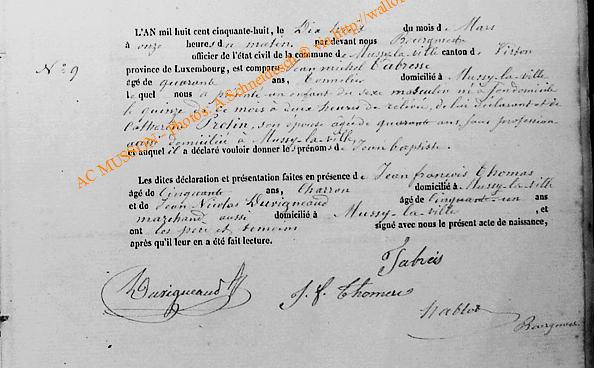 L'AN mil huit cent cinquante-huit, le Dix du mois de Mars
à onze heures du matin, par devant nous Bourgmestre
officier de l'état civil de la commune de Mussy-la-ville canton de Virton
N° 9
province de Luxembourg, est comparu Jean michel
âgé de quarante ans, domicilié à Mussy-la-ville
lequel nous a présenté un enfant du sexe masculin né à son domicile
le quinze de ce mois à deux heures de relevée, de lui déclarant et de
Catherine son épouse âgée de quarante ans, sans profession
aussi domiciliée à Mussy-la-ville
et auquel il a déclaré vouloir donner les prénoms de Jean baptiste.
Les dites déclaration et présentation faites en présence de Jean françois Thomas
âgé de Cinquante ans, Charron domicilié à Mussy-la-ville
et de Jean Nicolas Duvigneaud âgé de Cinquante-un ans
marchand aussi domicilié à Mussy-la-ville , et
ont les père et témoins signé avec nous le présent acte de naissance,
après qu'il leur en a été fait lecture.
Duvigneaud J. f.
AC MUSSON - photos: A Schneidesch @ via http://wallo